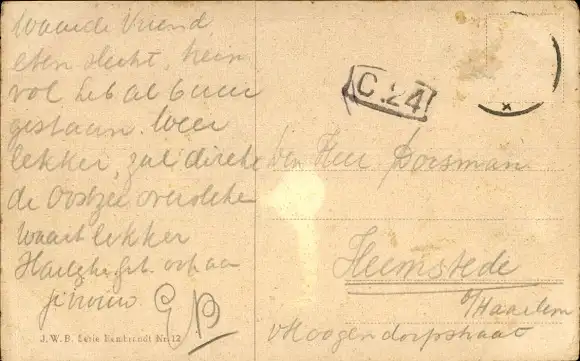 Waarde Vriend
eten slecht, trein
vol heb al 6 uur
gestaan. Weer
lekker, zal direkt
de Oostzee oversteken
Waait lekker
aan
GB
J.W.B. Serie Rembrandt Nr. 12
C.24
Den Heer Doesman
Heemstede
b/Haarlem
v Hoogendorpstraat